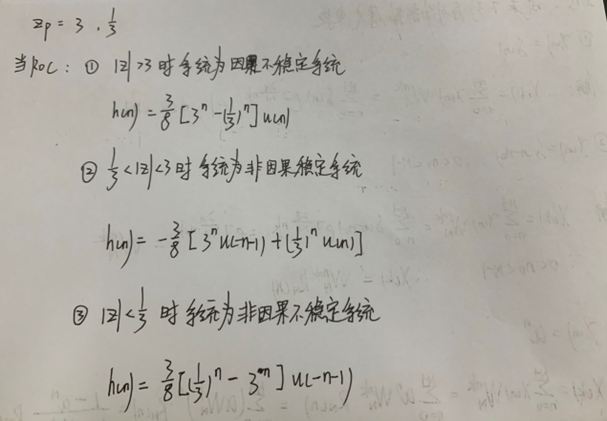 Zp = 3 , 1/3
当ROC: ① |z|>3 时系统为因果不稳定系统
h(n) = 3/8 [3^n - (1/3)^n] u(n)
② 1/3 < |z| < 3 时系统为非因果稳定系统
h(n) = -3/8 [3^n u(-n-1) + (1/3)^n u(n)]
③ |z| < 1/3 时系统为非因果不稳定系统
h(n) = 3/8 [(1/3)^n - 3^n] u(-n-1)